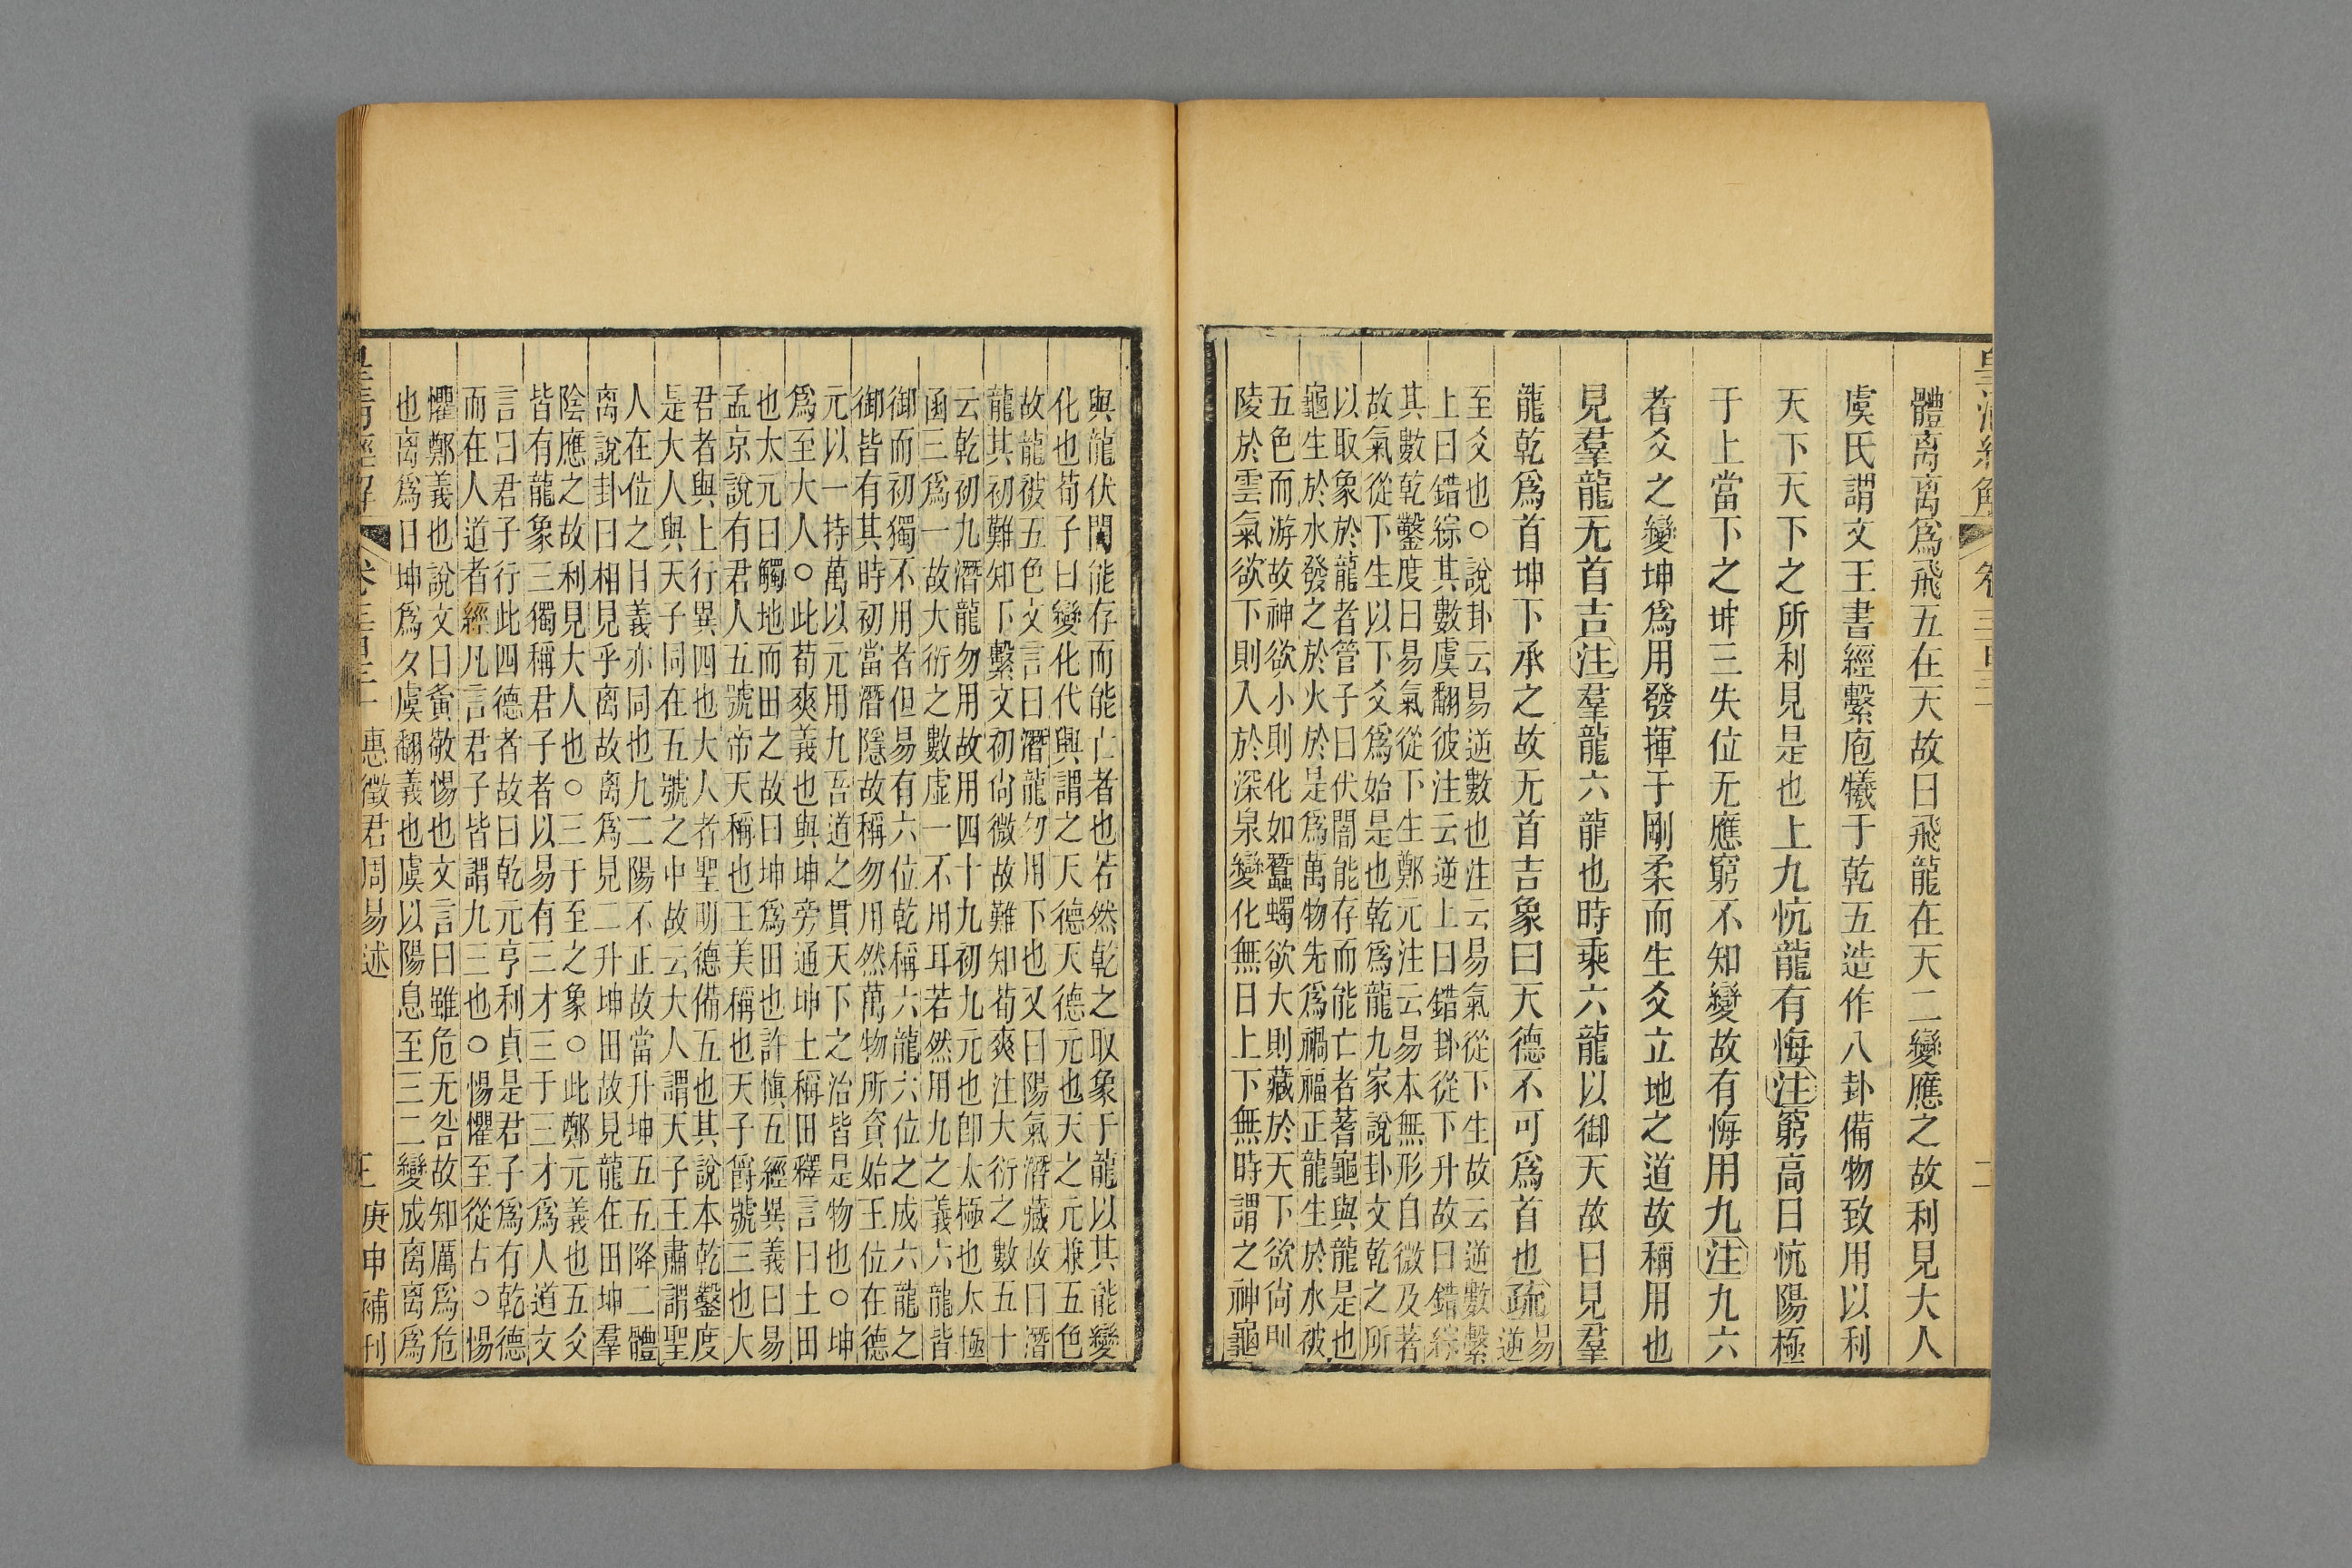 皇清經解
卷三百三十
二
體离离爲飛五在天故曰飛龍在天二變應之故利見大人
虞氏謂文王書經繫庖犧于乾五造作八卦備物致用以利
天下天下之所利見是也上九忼龍有悔注窮高曰忼陽極
于上當下之坤三失位无應窮不知變故有悔用九注九六
者爻之變坤爲用發揮于剛柔而生爻立地之道故稱用也
見羣龍无首吉注羣龍六龍也時乘六龍以御天故曰見羣
龍乾爲首坤下承之故无首吉象曰天德不可爲首也疏易
逆
至爻也○說卦云易逆數也注云易氣從下生故云逆數繫
上曰錯綜其數虞翻彼注云逆上曰錯卦從下升故曰錯綜
其數乾鑿度曰易氣從下生鄭元注云易本無形自微及著
故氣從下生以下爻爲始是也乾爲龍九家說卦文乾之所
以取象於龍者管子曰伏闇能存而能亡者蓍龜與龍是也
龜生於水發之於火於是爲萬物先爲禍福正龍生於水被
五色而游故神欲小則化如蠶蠋欲大則藏於天下欲尙則
陵於雲氣欲下則入於深泉變化無日上下無時謂之神龜
與龍伏闇能存而能亡者也若然乾之取象于龍以其能變
化也荀子曰變化代興謂之天德天德元也天之元兼五色
故龍被五色文言曰潛龍勿用下也又曰陽氣潛藏故曰潛
龍其初難知下繫文初尙微故難知荀爽注大衍之數五十
云乾初九潛龍勿用故用四十九初九元也卽太極也太極
函三爲一故大衍之數虛一不用耳若然用九之義六龍皆
御而初獨不用者但易有六位乾稱六龍六位之成六龍之
御皆有其時初當潛隱故稱勿用然萬物所資始王位在德
元以一持萬以元用九吾道之貫天下之治皆是物也○坤
爲至大人○此荀爽義也與坤旁通坤土稱田釋言曰土田
也太元曰觸地而田之故曰坤爲田也許愼五經異義曰易
孟京說有君人五號帝天稱也王美稱也天子爵號三也大
君者與上行異四也大人者聖明德備五也其說本乾鑿度
是大人與天子同在五號之中故云大人謂天子王肅謂聖
人在位之目義亦同也九二陽不正故當升坤五五降二體
离說卦曰相見乎离故离爲見二升坤田故見龍在田坤羣
陰應之故利見大人也○三于至之象○此鄭元義也五爻
皆有龍象三獨稱君子者以易有三才三于三才爲人道文
言曰君子行此四德者故曰乾元亨利貞是君子爲有乾德
而在人道者經凡言君子皆謂九三也○惕懼至從占○惕
懼鄭義也說文曰夤敬惕也文言曰雖危无咎故知厲爲危
也离爲日坤爲夕虞翻義也虞以陽息至三二變成离离爲
皇清經解
卷三百三十
惠徵君周易述
三
庚申補刊